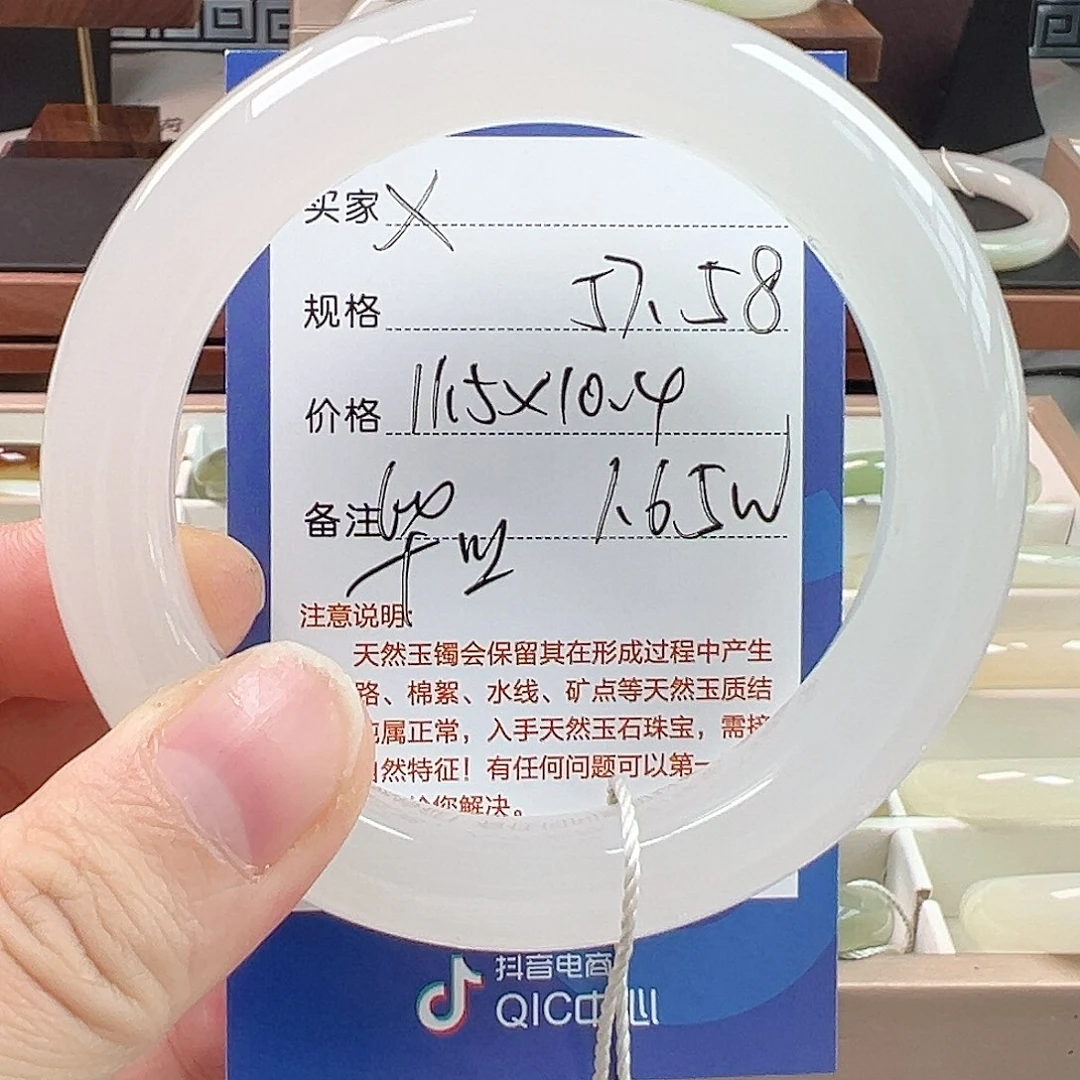 买家 X
规格 57.58
价格 11.5X10.4
备注 1.65W
注意说明:
天然玉镯会保留其在形成过程中产生
路、棉絮、水线、矿点等天然玉质结
属正常，入手天然玉石珠宝，需接
自然特征！有任何问题可以第一
给您解决。
抖音电商
QIC中心